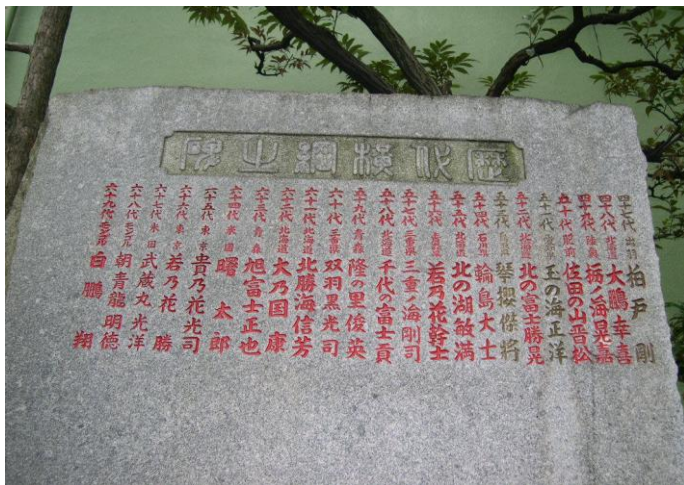 歴代横綱之碑
四十七代 出羽 柏戸 剛
四十八代 北海道 大鵬幸喜
四十九代 陸奥 栃ノ海晃嘉
五十代 肥前 佐田の山晋松
五十一代 玉の海正洋
五十二代 北海道 北の富士勝晃
五十三代 琴櫻傑將
五十四代 石川県 輪島大士
五十五代 北海道 北の湖敏満
五十六代 若乃花幹士
五十七代 三重県 三重ノ海剛司
五十八代 北海道 千代の富士貢
五十九代 青森 隆の里俊英
六十代 三重県 双羽黒光司
六十一代 北海道 北勝海信芳
六十二代 北海道 大乃国 康
六十三代 青森 旭富士正也
六十四代 米国 曙 太郎
六十五代 東京 貴乃花光司
六十六代 東京 若乃花 勝
六十七代 米国 武蔵丸光洋
六十八代 モンゴル 朝青龍明徳
六十九代 モンゴル 白鵬 翔